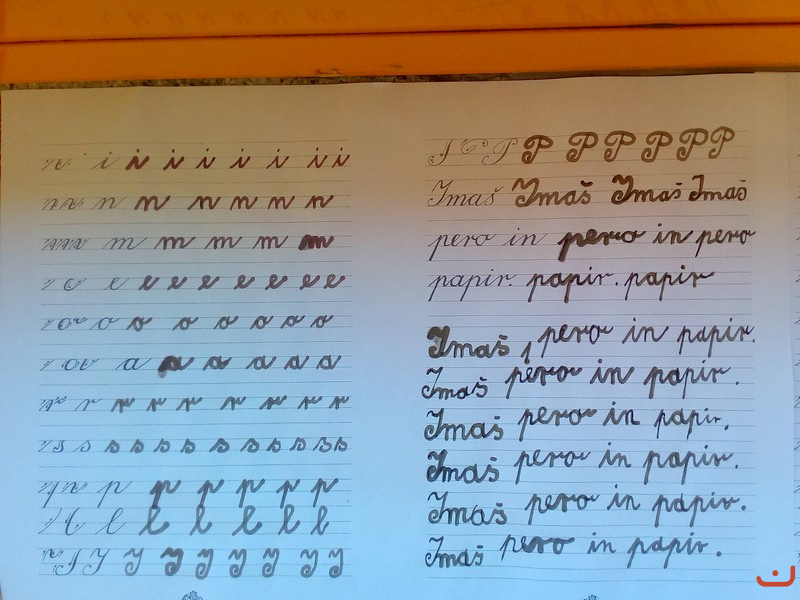 i i i i i i i i
n n n n n n n
m m m m m m
e e e e e e e e
o o o o o o o o
a a a a a a a
r r r r r r r r
s s s s s s s s s s s
p p p p p p p
l l l l l l
I I I I I I I I
P P P P P P P P
Imaš Imaš Imaš Imaš
pero in pero in pero
papir. papir. papir
Imaš, pero in papir.
Imaš pero in papir.
Imaš pero in papir.
Imaš pero in papir.
Imaš pero in papir.
Imaš pero in papir.